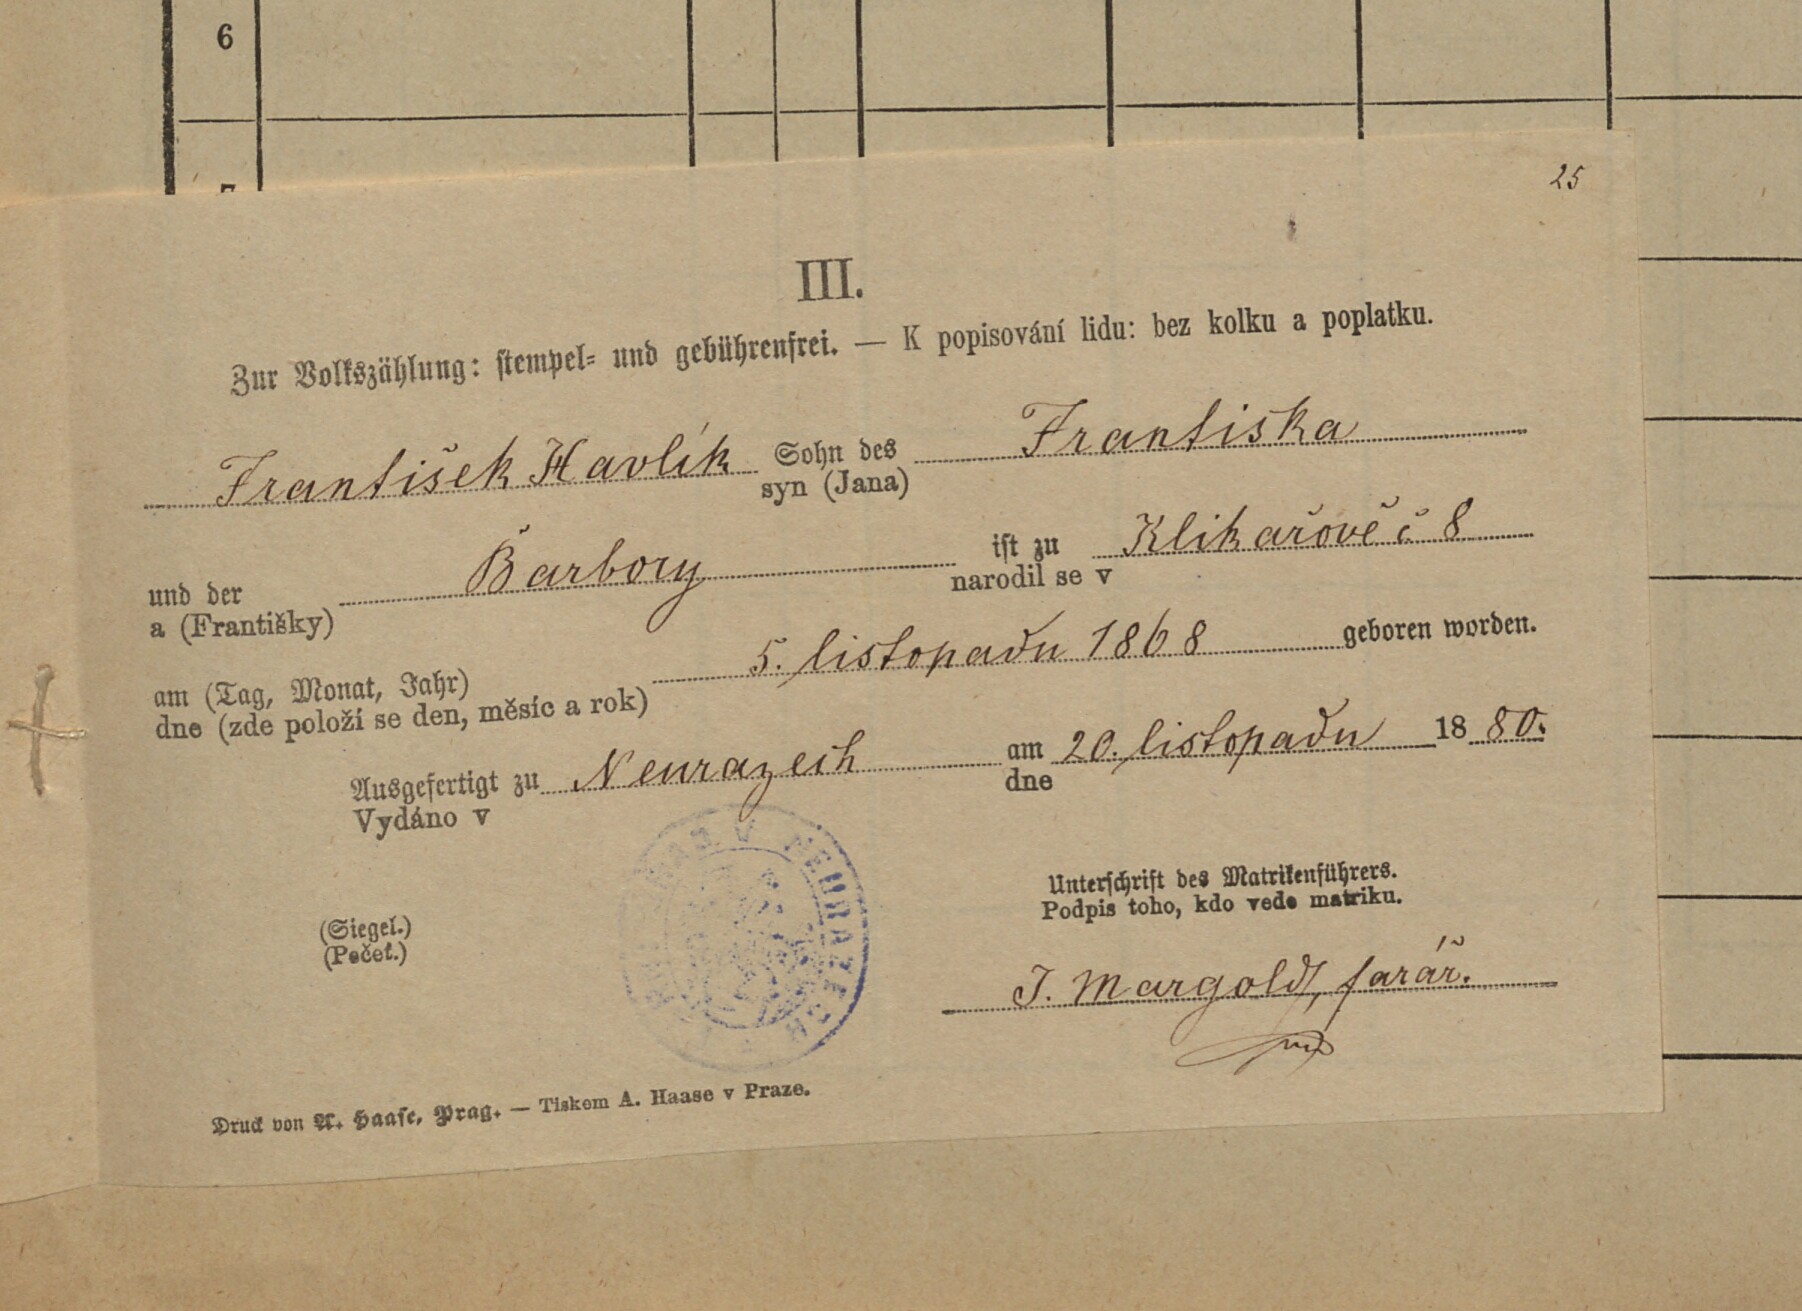 6
7
25
III.
Zur Volkszählung: stempel- und gebührenfrei. — K popisování lidu: bez kolku a poplatku.
František Havlík Sohn des Františka
syn (Jana)
und der Barbory ist zu Klikařově č 8
a (Františky) narodil se v
am (Tag, Monat, Jahr) 5. listopadu 1868 geboren worden.
dne (zde položí se den, měsíc a rok)
Ausgefertigt zu Neurazech am 20. listopadu 18 80.
Vydáno v dne
V NEURAZECH
Unterschrift des Matrikenführers.
Podpis toho, kdo vede matriku.
(Siegel.)
(Pečeť.)
J. Margold, farář.
Druck von A. Haase, Prag. — Tiskem A. Haase v Praze.